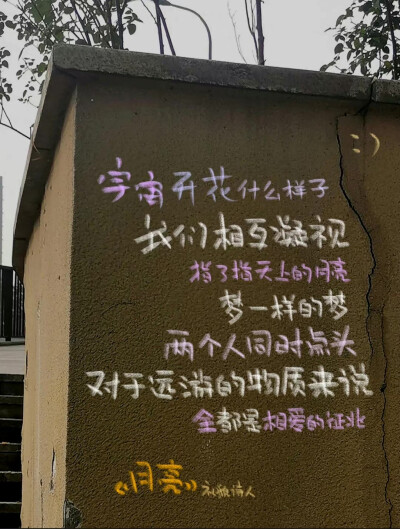 :)
宇宙开花什么样子
我们相互凝视
指了指天上的月亮
梦一样的梦
两个人同时点头
对于远游的物质来说
全都是相爱的证
《月亮》 诗人